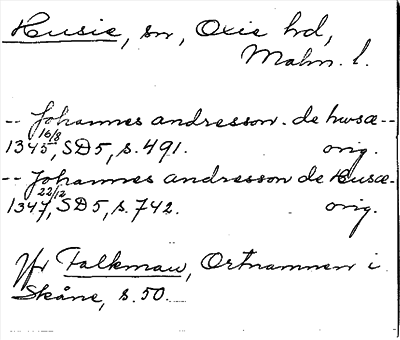 Husie, sn, Oxie hd,
Malm. l.
-- Johannes andresson. de huusæ--
16/8
1345, SD5, s. 491. orig.
-- Johannes andresson de Husæ-
22/12
1347, SD5, s. 742. orig.
Jfr Falkman, Ortnamnen i
Skåne, s. 50.